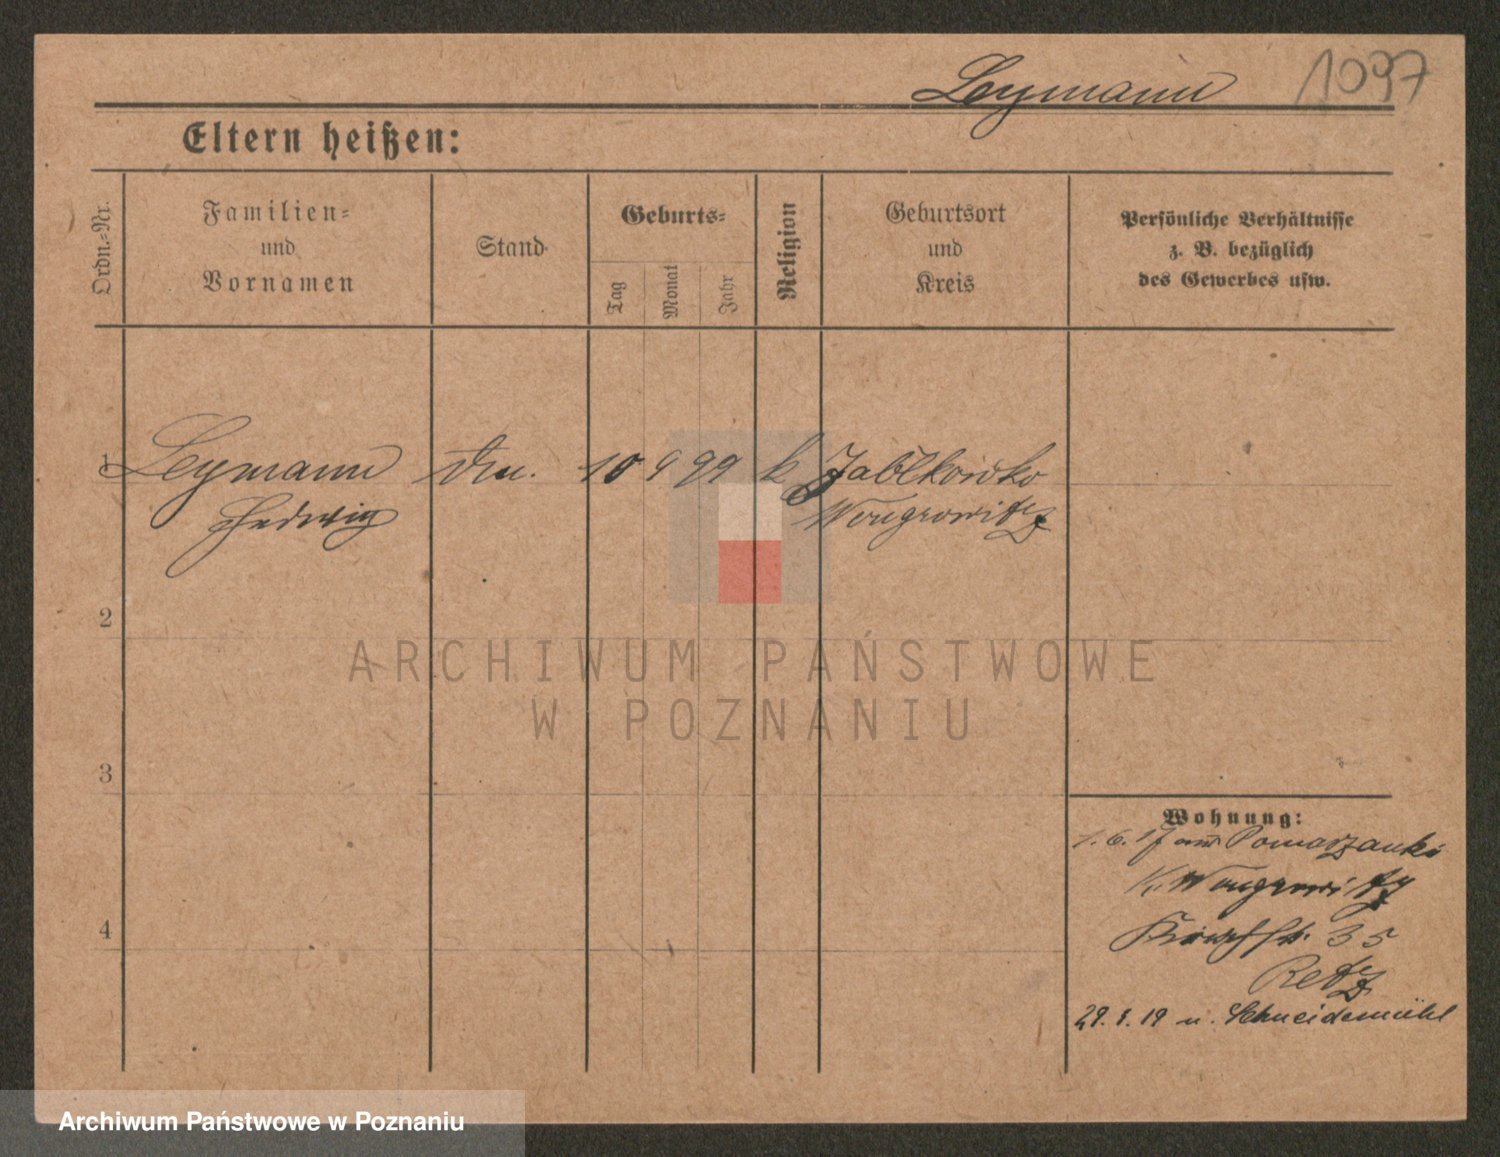 Leymann 1097
Eltern heißen:
Ordn.-Nr.
Familien-
und
Vornamen
Stand
Geburts-
Tag
Monat
Jahr
Religion
Geburtsort
und
Kreis
Persönliche Verhältnisse
z. B. bezüglich
des Gewerbes usw.
1 Leymann 10 9 99 k Jablkowko
Hedwig Wongrowitz
2
3
4
Wohnung:
1. 6. 17 aus Pomarzanki
K. Wongrowitz
35
Retz
29. 1. 19 n. Schneidemühl
ARCHIWUM PAŃSTWOWE
W POZNANIU
Archiwum Państwowe w Poznaniu